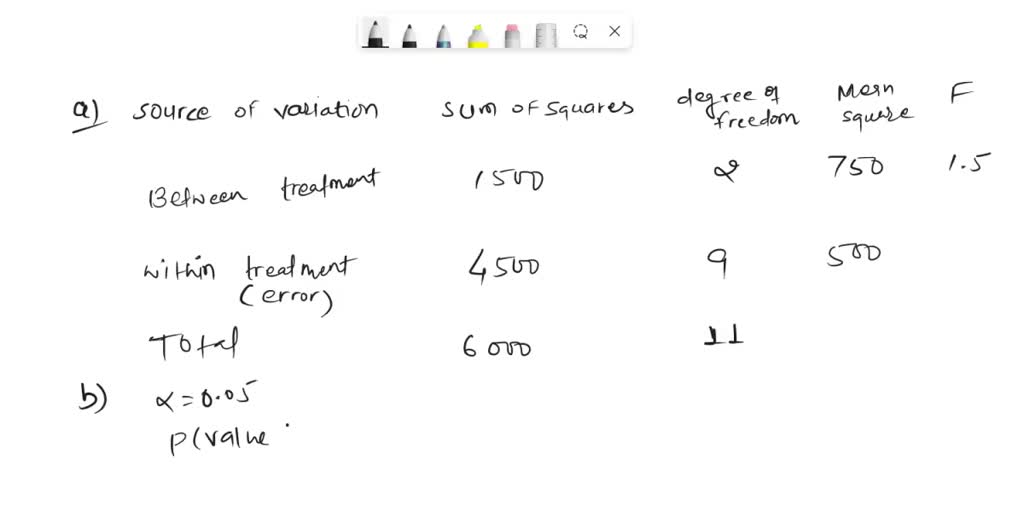 a) source of variation sum of squares degree of freedom Mean square F
Between treatment 1500 2 750 1.5
within treatment (error) 4500 9 500
Total 6000 11
b) α = 0.05
P(value